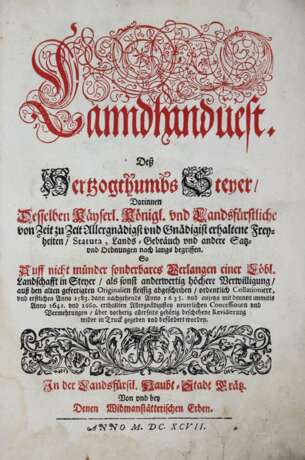 Lanndhandvest.
Deß
Hertzogthumbs Steyer/
Darinnen
Desselben Käyserl. Königl. vnd Landsfürstliche
von Zeit zu Zeit Allergnädigst vnd Gnädigist erhaltene Frey-
heiten/ Statuta, Lands-Gebräuch vnd andere Satz-
vnd Ordnungen nach längs begriffen.
So
Auff nicht münder sonderbares Verlangen einer Löbl.
Landschafft in Steyer/ als sonst anderwertig höchere Verwilligung/
auß den alten gefertigten Originalien fleissig abgeschriben/ ordentlich Collationiert,
vnd erstlichen Anno 1583. dann nachgehends Anno 1635. vnd mit denen inmitls
Anno 1642. vnd 1660. erthailten Allergnädigisten neuerlichen Concessionen vnd
Vermehrungen/ über vorhero allerseits gehörig beschehene Revidierung
wider in Truck gegeben vnd befördert worden.
In der Landsfürstl. Haubt-Stadt Grätz.
Von vnd bey
Denen Widmanstätterischen Erben.
ANNO M. DC. XCVII.